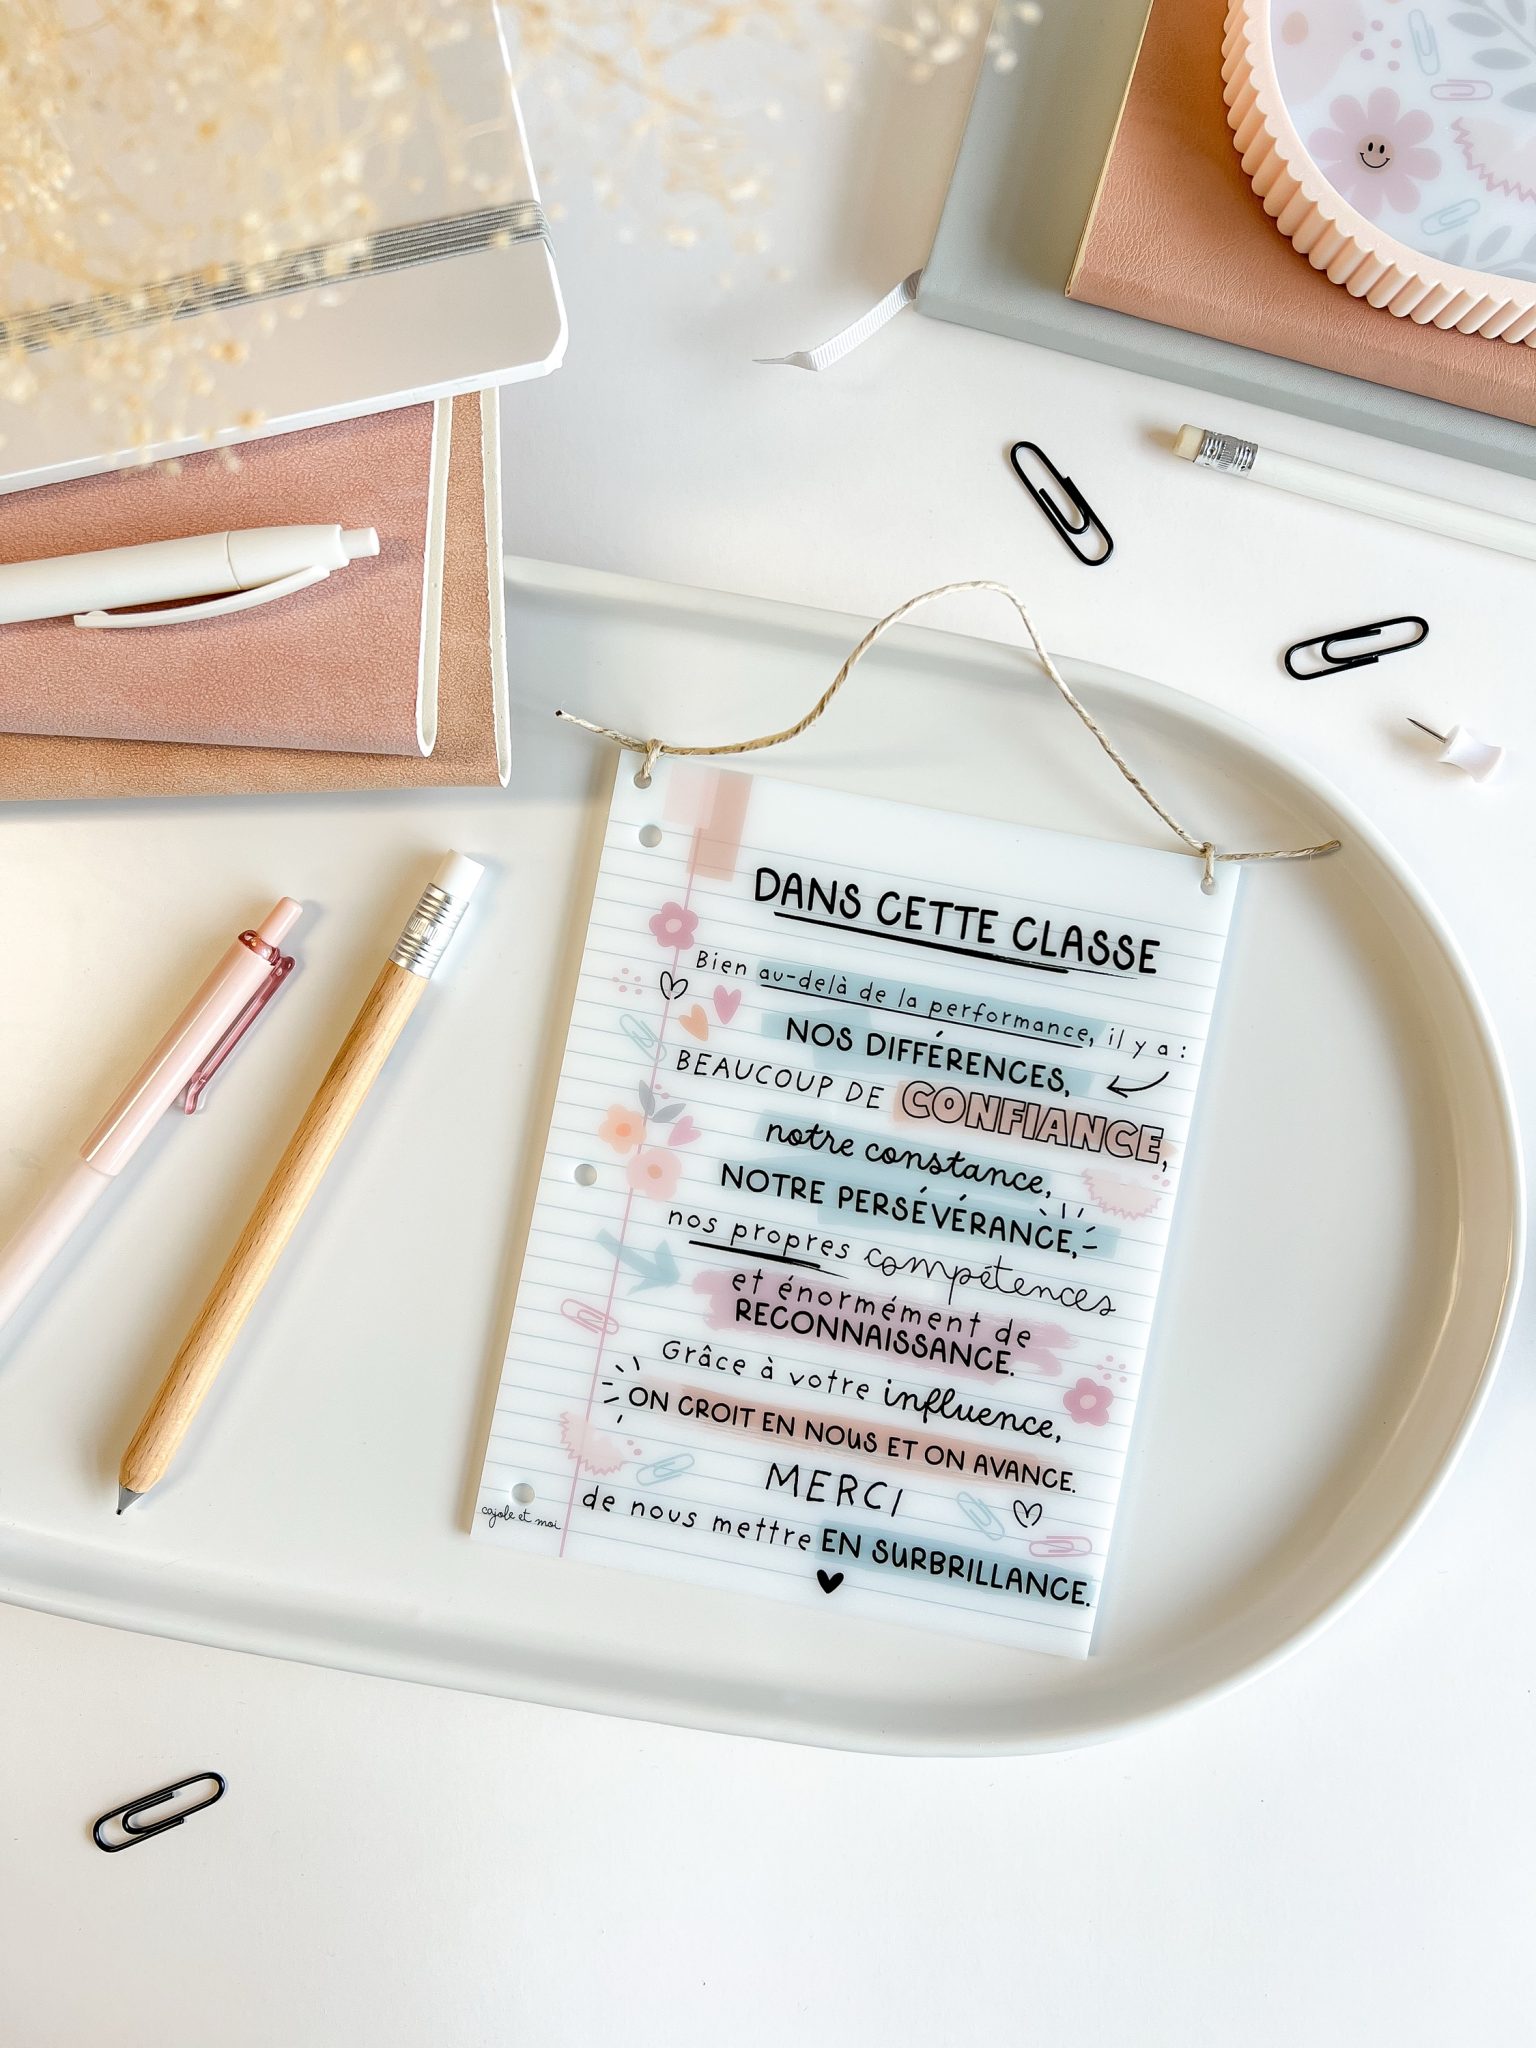 DANS CETTE CLASSE
Bien au-delà de la performance, il y a :
NOS DIFFÉRENCES,
BEAUCOUP DE CONFIANCE,
notre constance,
NOTRE PERSÉVÉRANCE,
nos propres compétences
et énormément de
RECONNAISSANCE.
Grâce à votre influence,
ON CROIT EN NOUS ET ON AVANCE.
MERCI
de nous mettre EN SURBRILLANCE.
cajole et moi